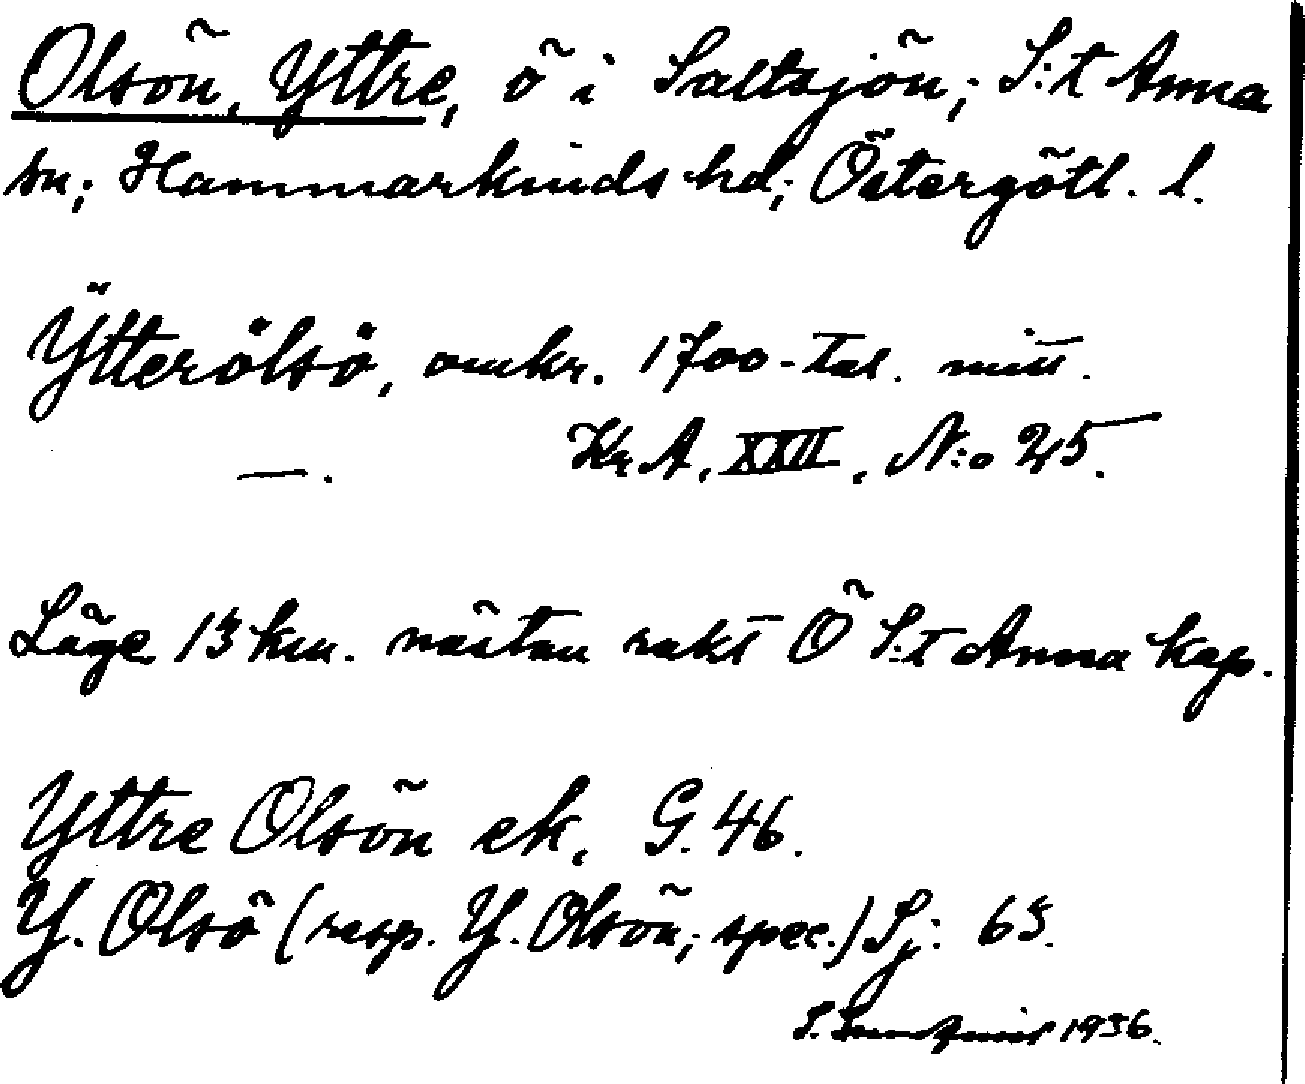 Olsön, Yttre, ö i Saltsjön; S:t Anna
sn; Hammarkinds hd; Östergötl. l.
Ytterölsö, omkr. 1700-tal. mitt.
—. Kr. A. XXII. N:o 25.
Läge 13 km. nästan rakt Ö S:t Anna kap.
Yttre Olsön ek. G. 46.
Y. Olsö (resp. Y. Olsön; spec.) Sj: 65.
1936.